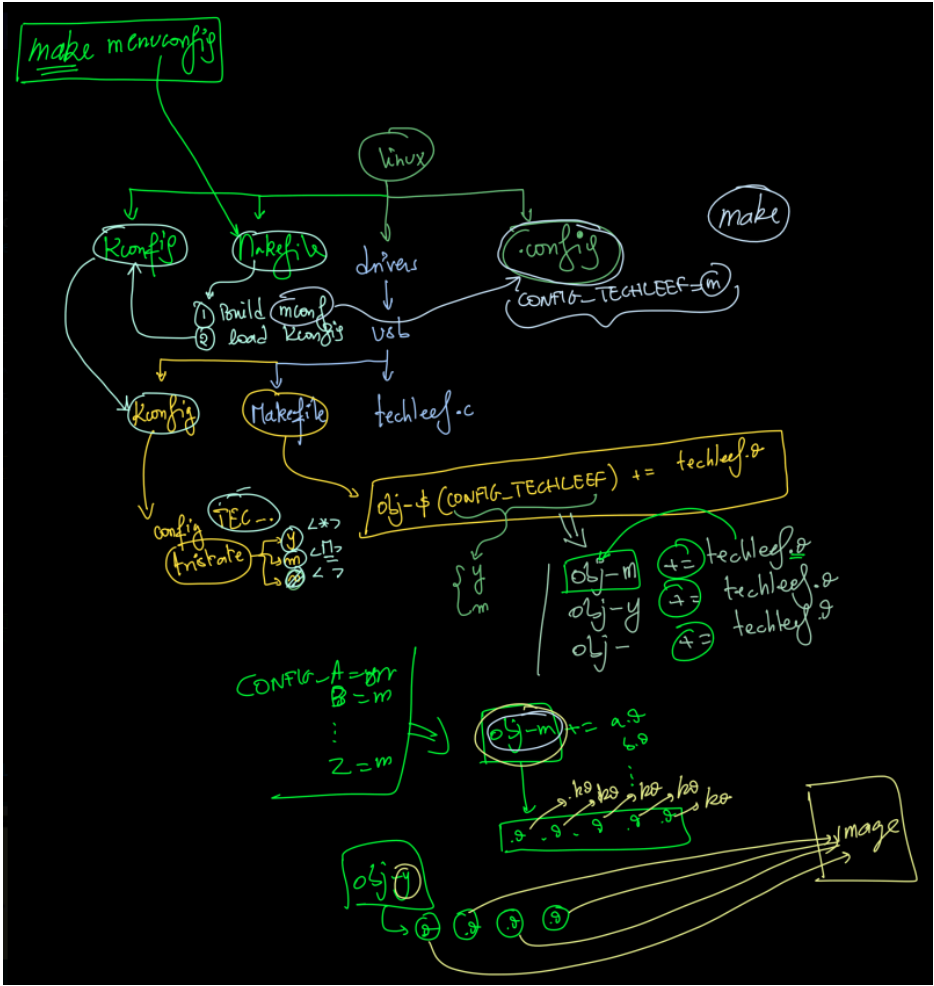 make menuconfig
linux
Kconfig Makefile drivers .config make
CONFIG_TECHLEEF=m
1 Build mconf
2 load Kconfig
usb
Kconfig Makefile techleef.c
obj-$(CONFIG_TECHLEEF) += techleef.o
config TEC_..
tristate
y <*>
m <M>
< >
{ y
m
obj-m += techleef.o
obj-y += techleef.o
obj- += techleef.o
CONFIG_A=m
B=m
⋮
Z=m
obj-m += a.o
b.o
⋮
.ko ko ko ko ko
.o .o .o .o .o
Image
obj-y
.o .o .o .o